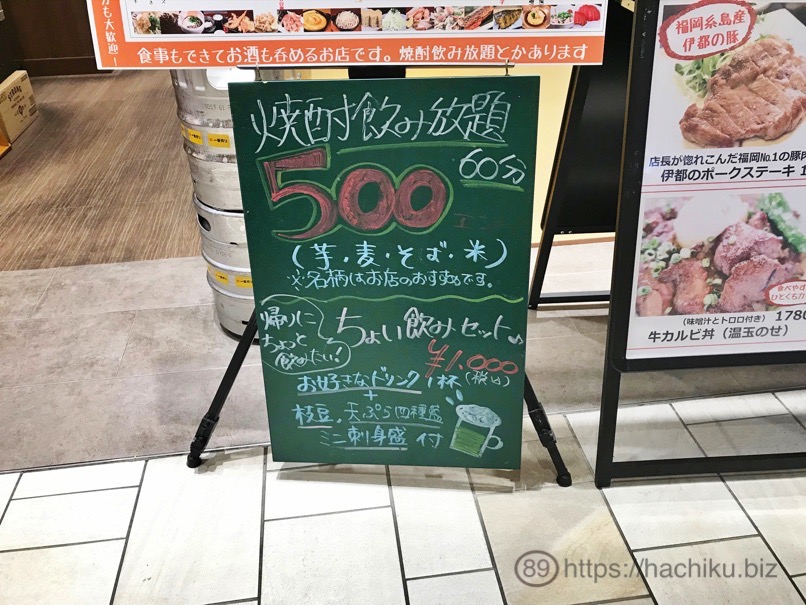 も大歓迎！
食事もできてお酒も呑めるお店です。焼酎飲み放題とかあります
焼酎飲み放題
60分
500
(芋・麦・そば・米)
※名柄はお店のおすすめです。
帰りに
ちょっと
飲みたい!
ちょい飲みセット♪
¥1,000
(税込)
お好きなドリンク1杯
+
枝豆、天ぷら四種盛
ミニ刺身盛 付
福岡糸島産
伊都の豚
店長が惚れこんだ福岡No.1の豚肉
伊都のポークステーキ 1
食べやす
ひとくちカ
(味噌汁とトロロ付き) 1780
牛カルビ丼(温玉のせ)
89 https://hachiku.biz